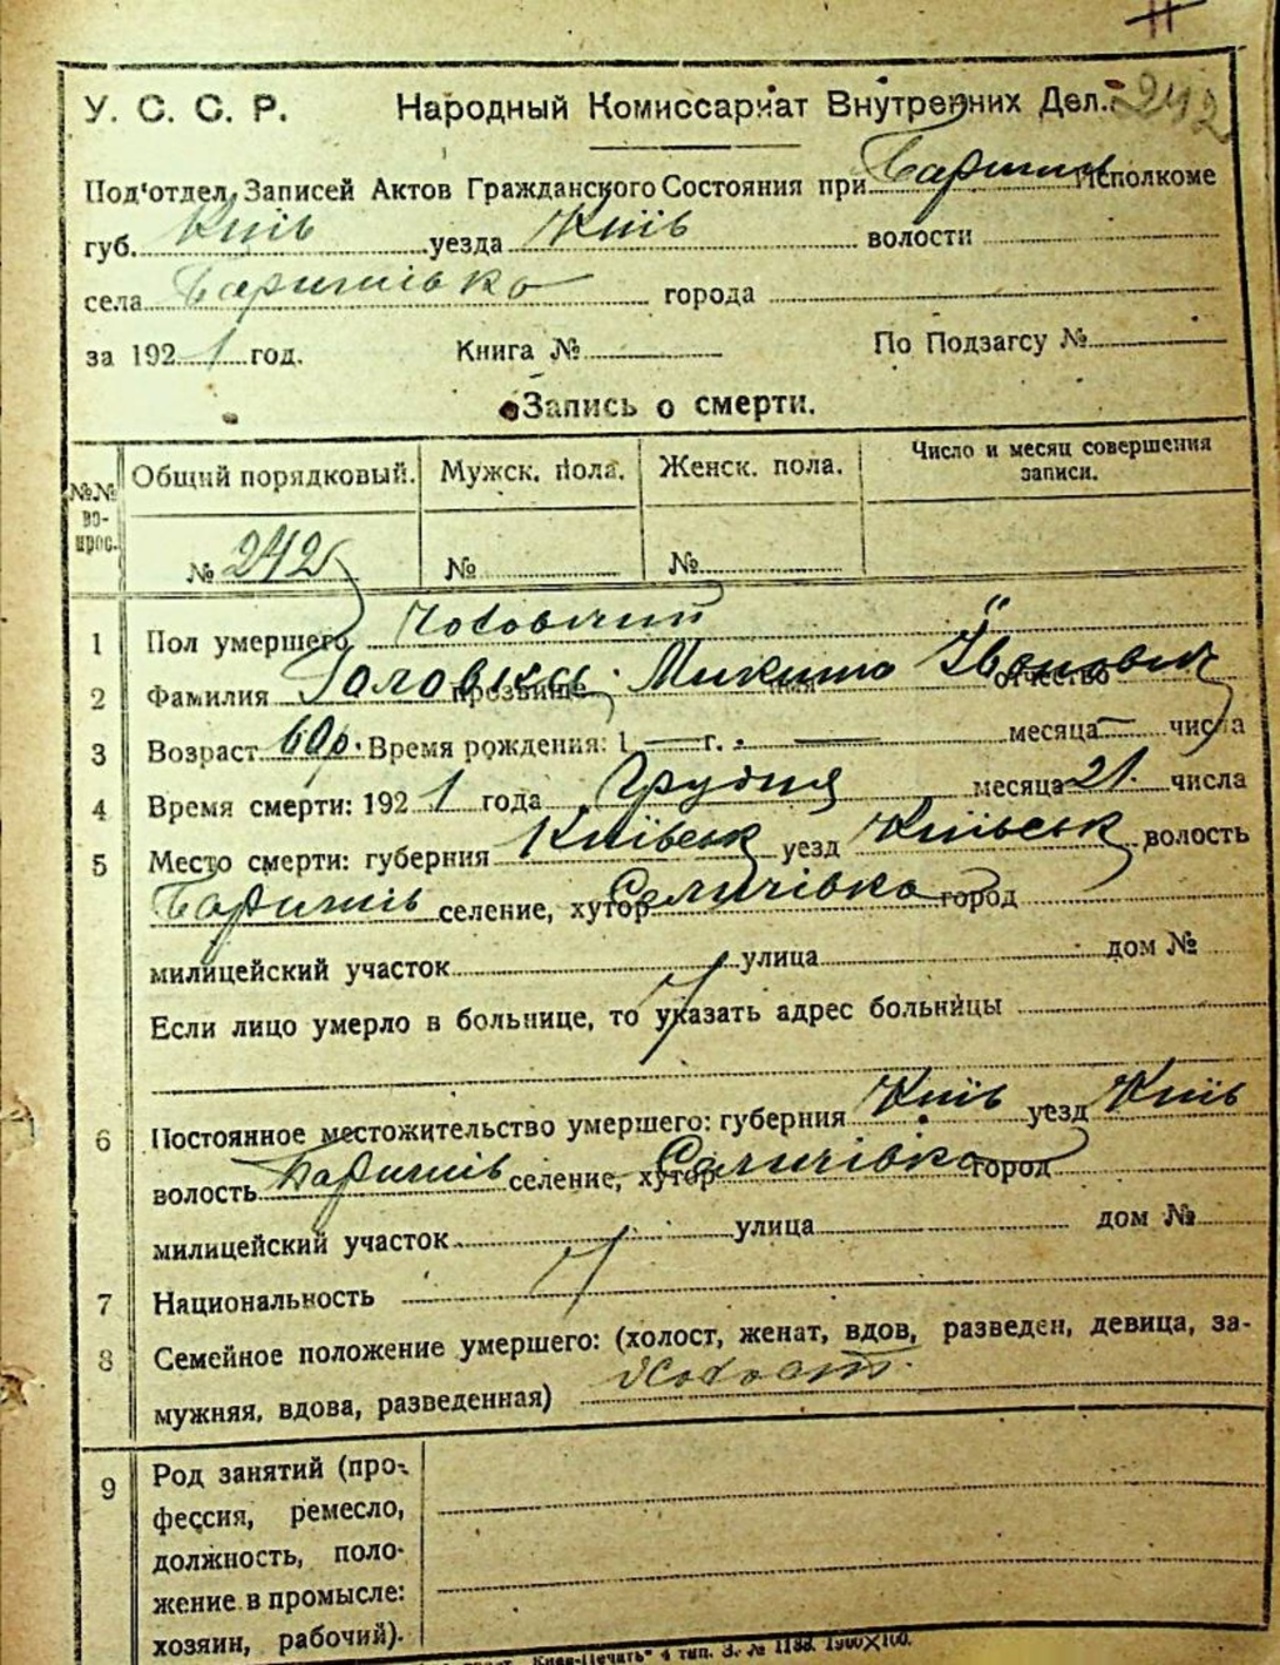 У. С. С. Р. Народный Комиссариат Внутренних Дел. 242
Под'отдел Записей Актов Гражданского Состояния при Баришів Исполкоме
губ. Київ уезда Київ волости
села Баришівка города
за 1921 год. Книга № По Подзагсу №
Запись о смерти.
№№ во-прос. Общий порядковый. Мужск. пола. Женск. пола. Число и месяц совершения записи.
№ 242 № №
1 Пол умершего Чоловичий
2 Фамилия прозвище Микита имя Івонович отчество
3 Возраст 60 р. Время рождения: 1 — г. — месяца — числа
4 Время смерти: 1921 года Грудня месяца 21. числа
5 Место смерти: губерния Київськ уезд Київськ волость
Баришів селение, хутор Селичівка город
милицейский участок улица дом №
Если лицо умерло в больнице, то указать адрес больницы
6 Постоянное местожительство умершего: губерния Київ уезд Київ
волость Баришів селение, хутор Селичівка город
милицейский участок улица дом №
7 Национальность
8 Семейное положение умершего: (холост, женат, вдов, разведен, девица, за-
мужняя, вдова, разведенная) Холост.
9 Род занятий (про-
фессия, ремесло,
должность, поло-
жение в промысле:
хозяин, рабочий).
"Киев-Печать" 4 тип. З. № 1188. 1900×100.